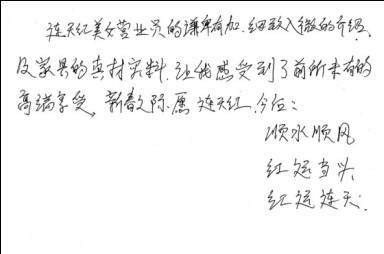 连天红美女营业员的谦卑有加、细致入微的介绍
及家具的真材实料、让我感受到了前所未有的
高端享受、新春之际、愿连天红今后：
顺水顺风
红运当头、
红运连天.